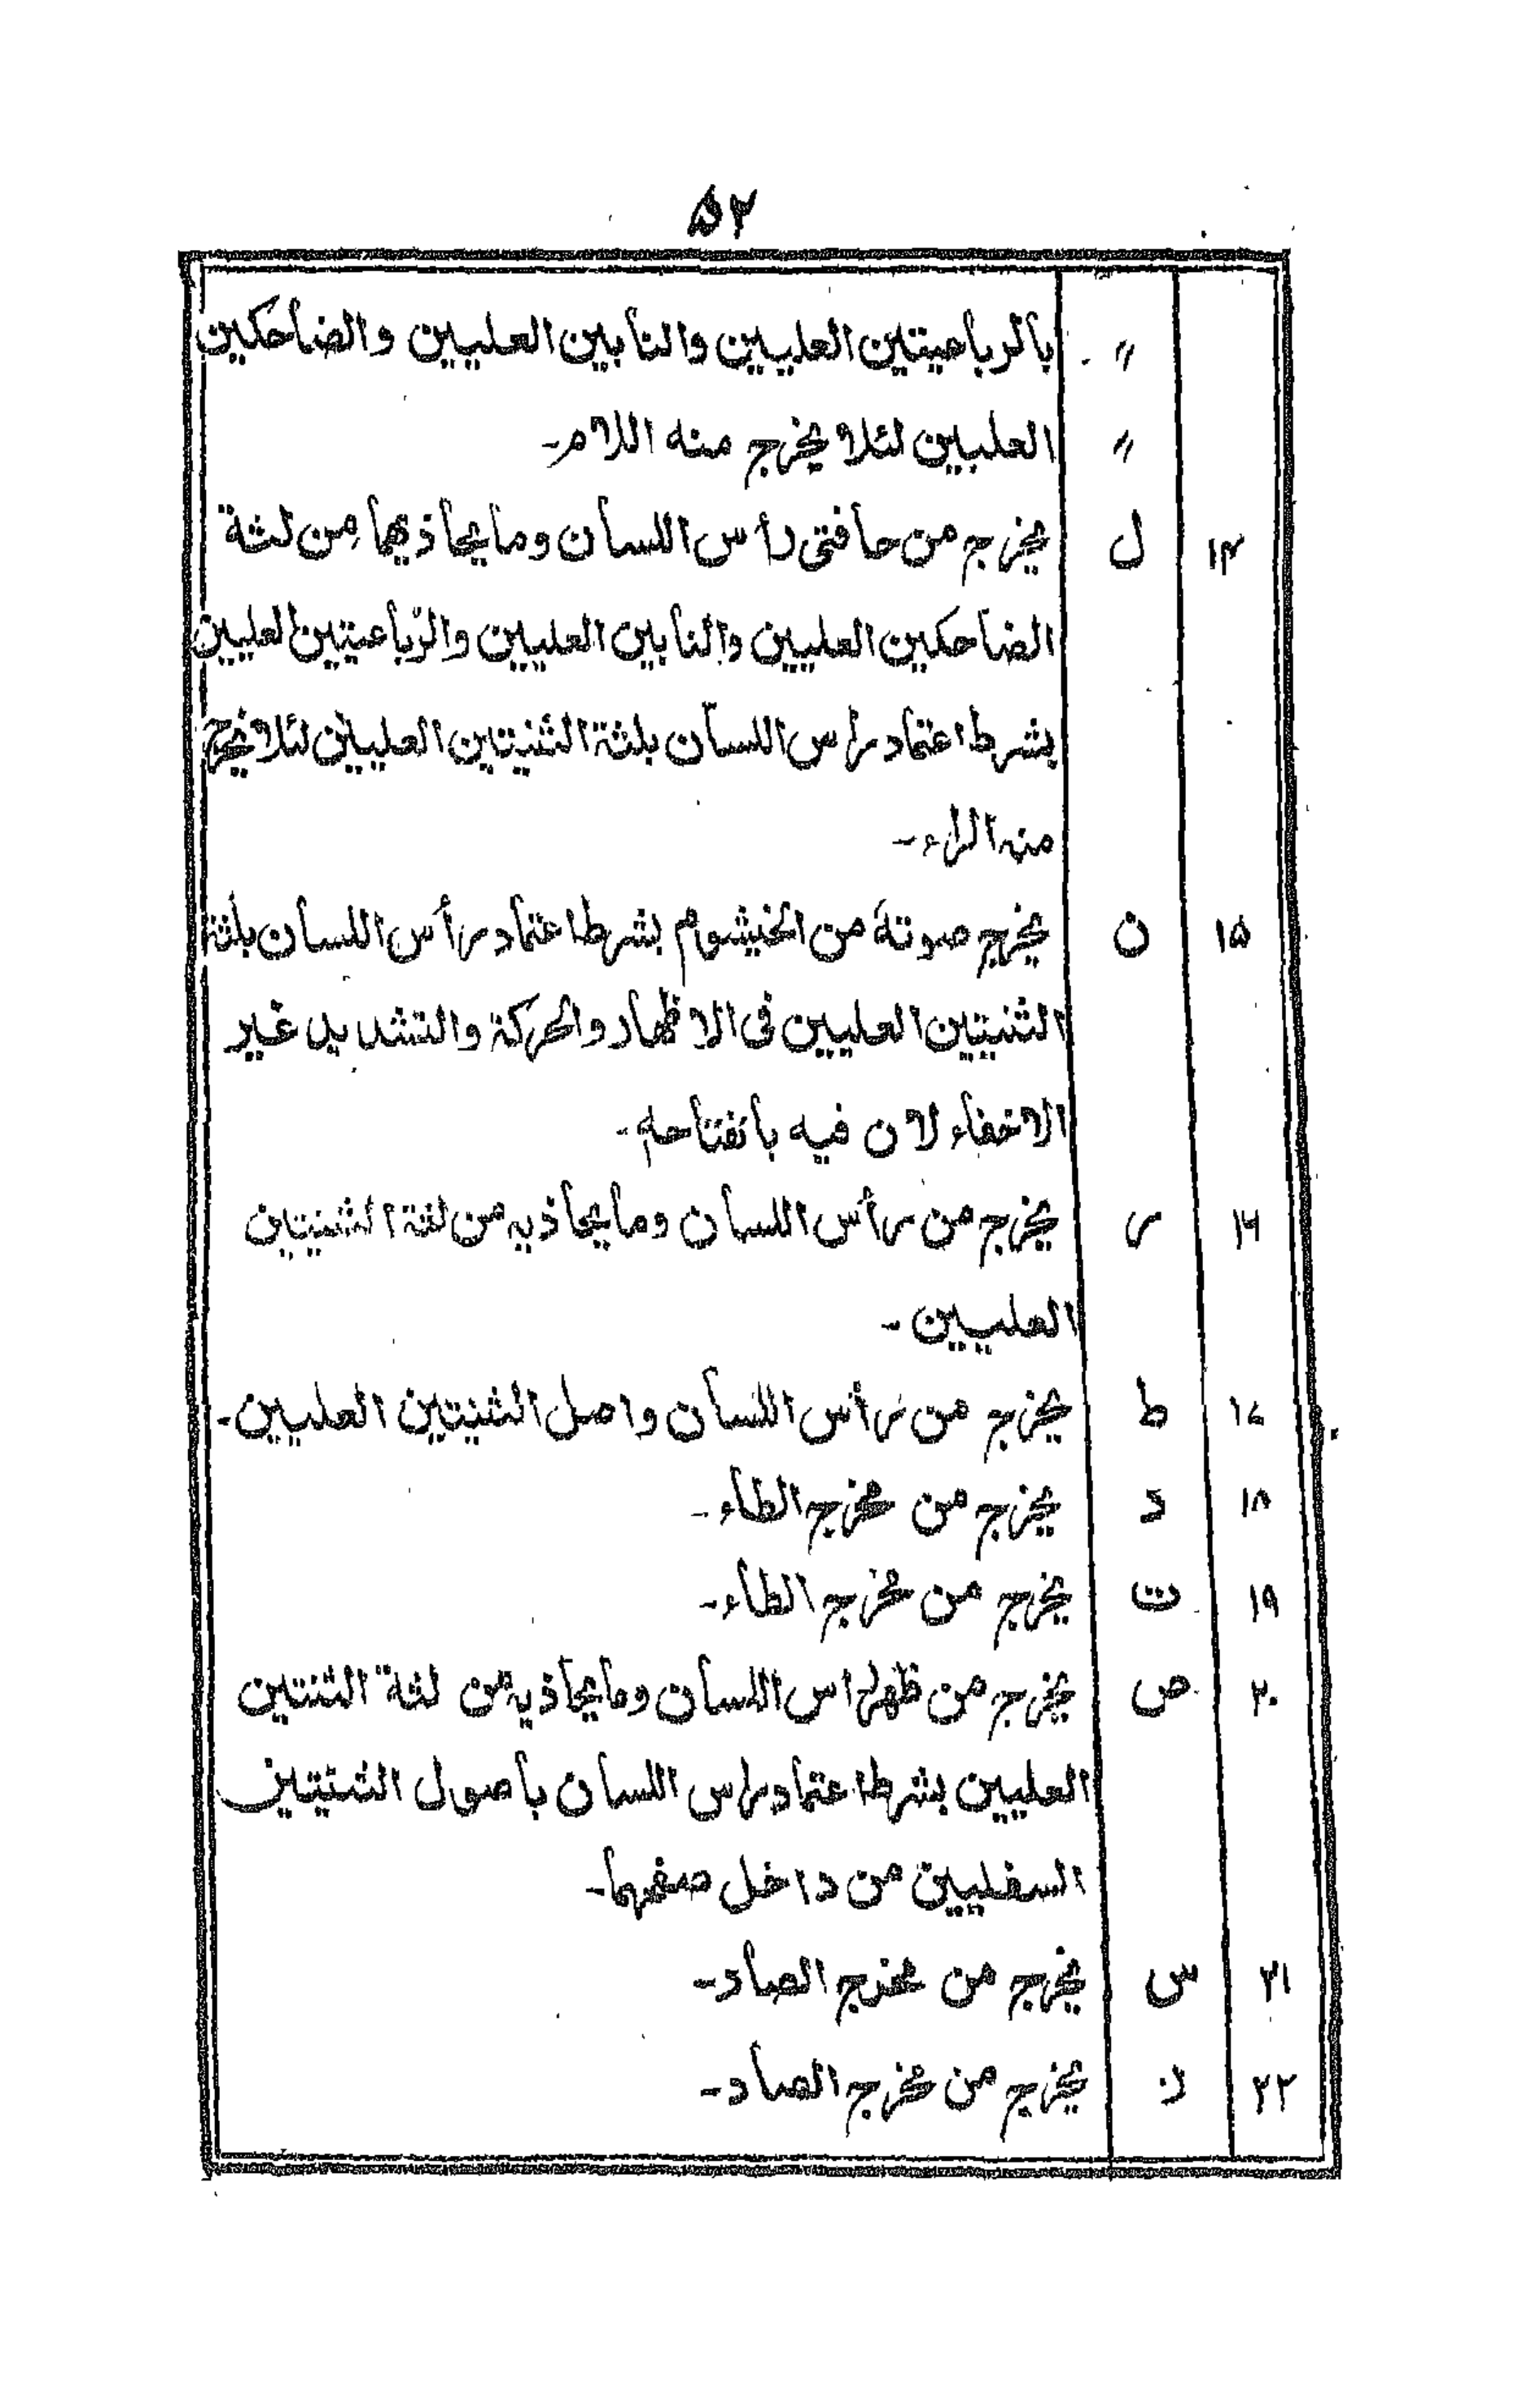 ۵۲
〃 بالرباعيتين العليين والنابين العليين والضاحكين
〃 العليين لئلا يخرج منه اللام-
۱۴ ل يخرج من حافتى رأس اللسان وما يحاذيهما من لثة
الضاحكين العليين والنابين العليين والرّباعيتين العليين
بشرط اعتماد راس اللسان بلثة الثنيتين العليين لئلا يخرج
منه الراء-
۱۵ ن يخرج صوته من الخيشوم بشرط اعتماد رأس اللسان بلثة
الثنيتين العليين فى الاظهار والحركة والتشديد غير
الاخفاء لان فيه بانفتاحه-
۱۶ ر يخرج من رأس اللسان وما يحاذيه من لثة الثنيتين
العليين-
۱۷ ط يخرج من رأس اللسان واصل الثنيتين العليين-
۱۸ د يخرج من مخرج الطاء-
۱۹ ت يخرج من مخرج الطاء-
۲۰ ص يخرج من ظهر راس اللسان وما يحاذيه من لثة الثنتين
العليين بشرط اعتماد راس اللسان باصول الثنيتين
السفليين من داخل صفهما-
۲۱ س يخرج من مخرج الصاد-
۲۲ ز يخرج من مخرج الصاد-